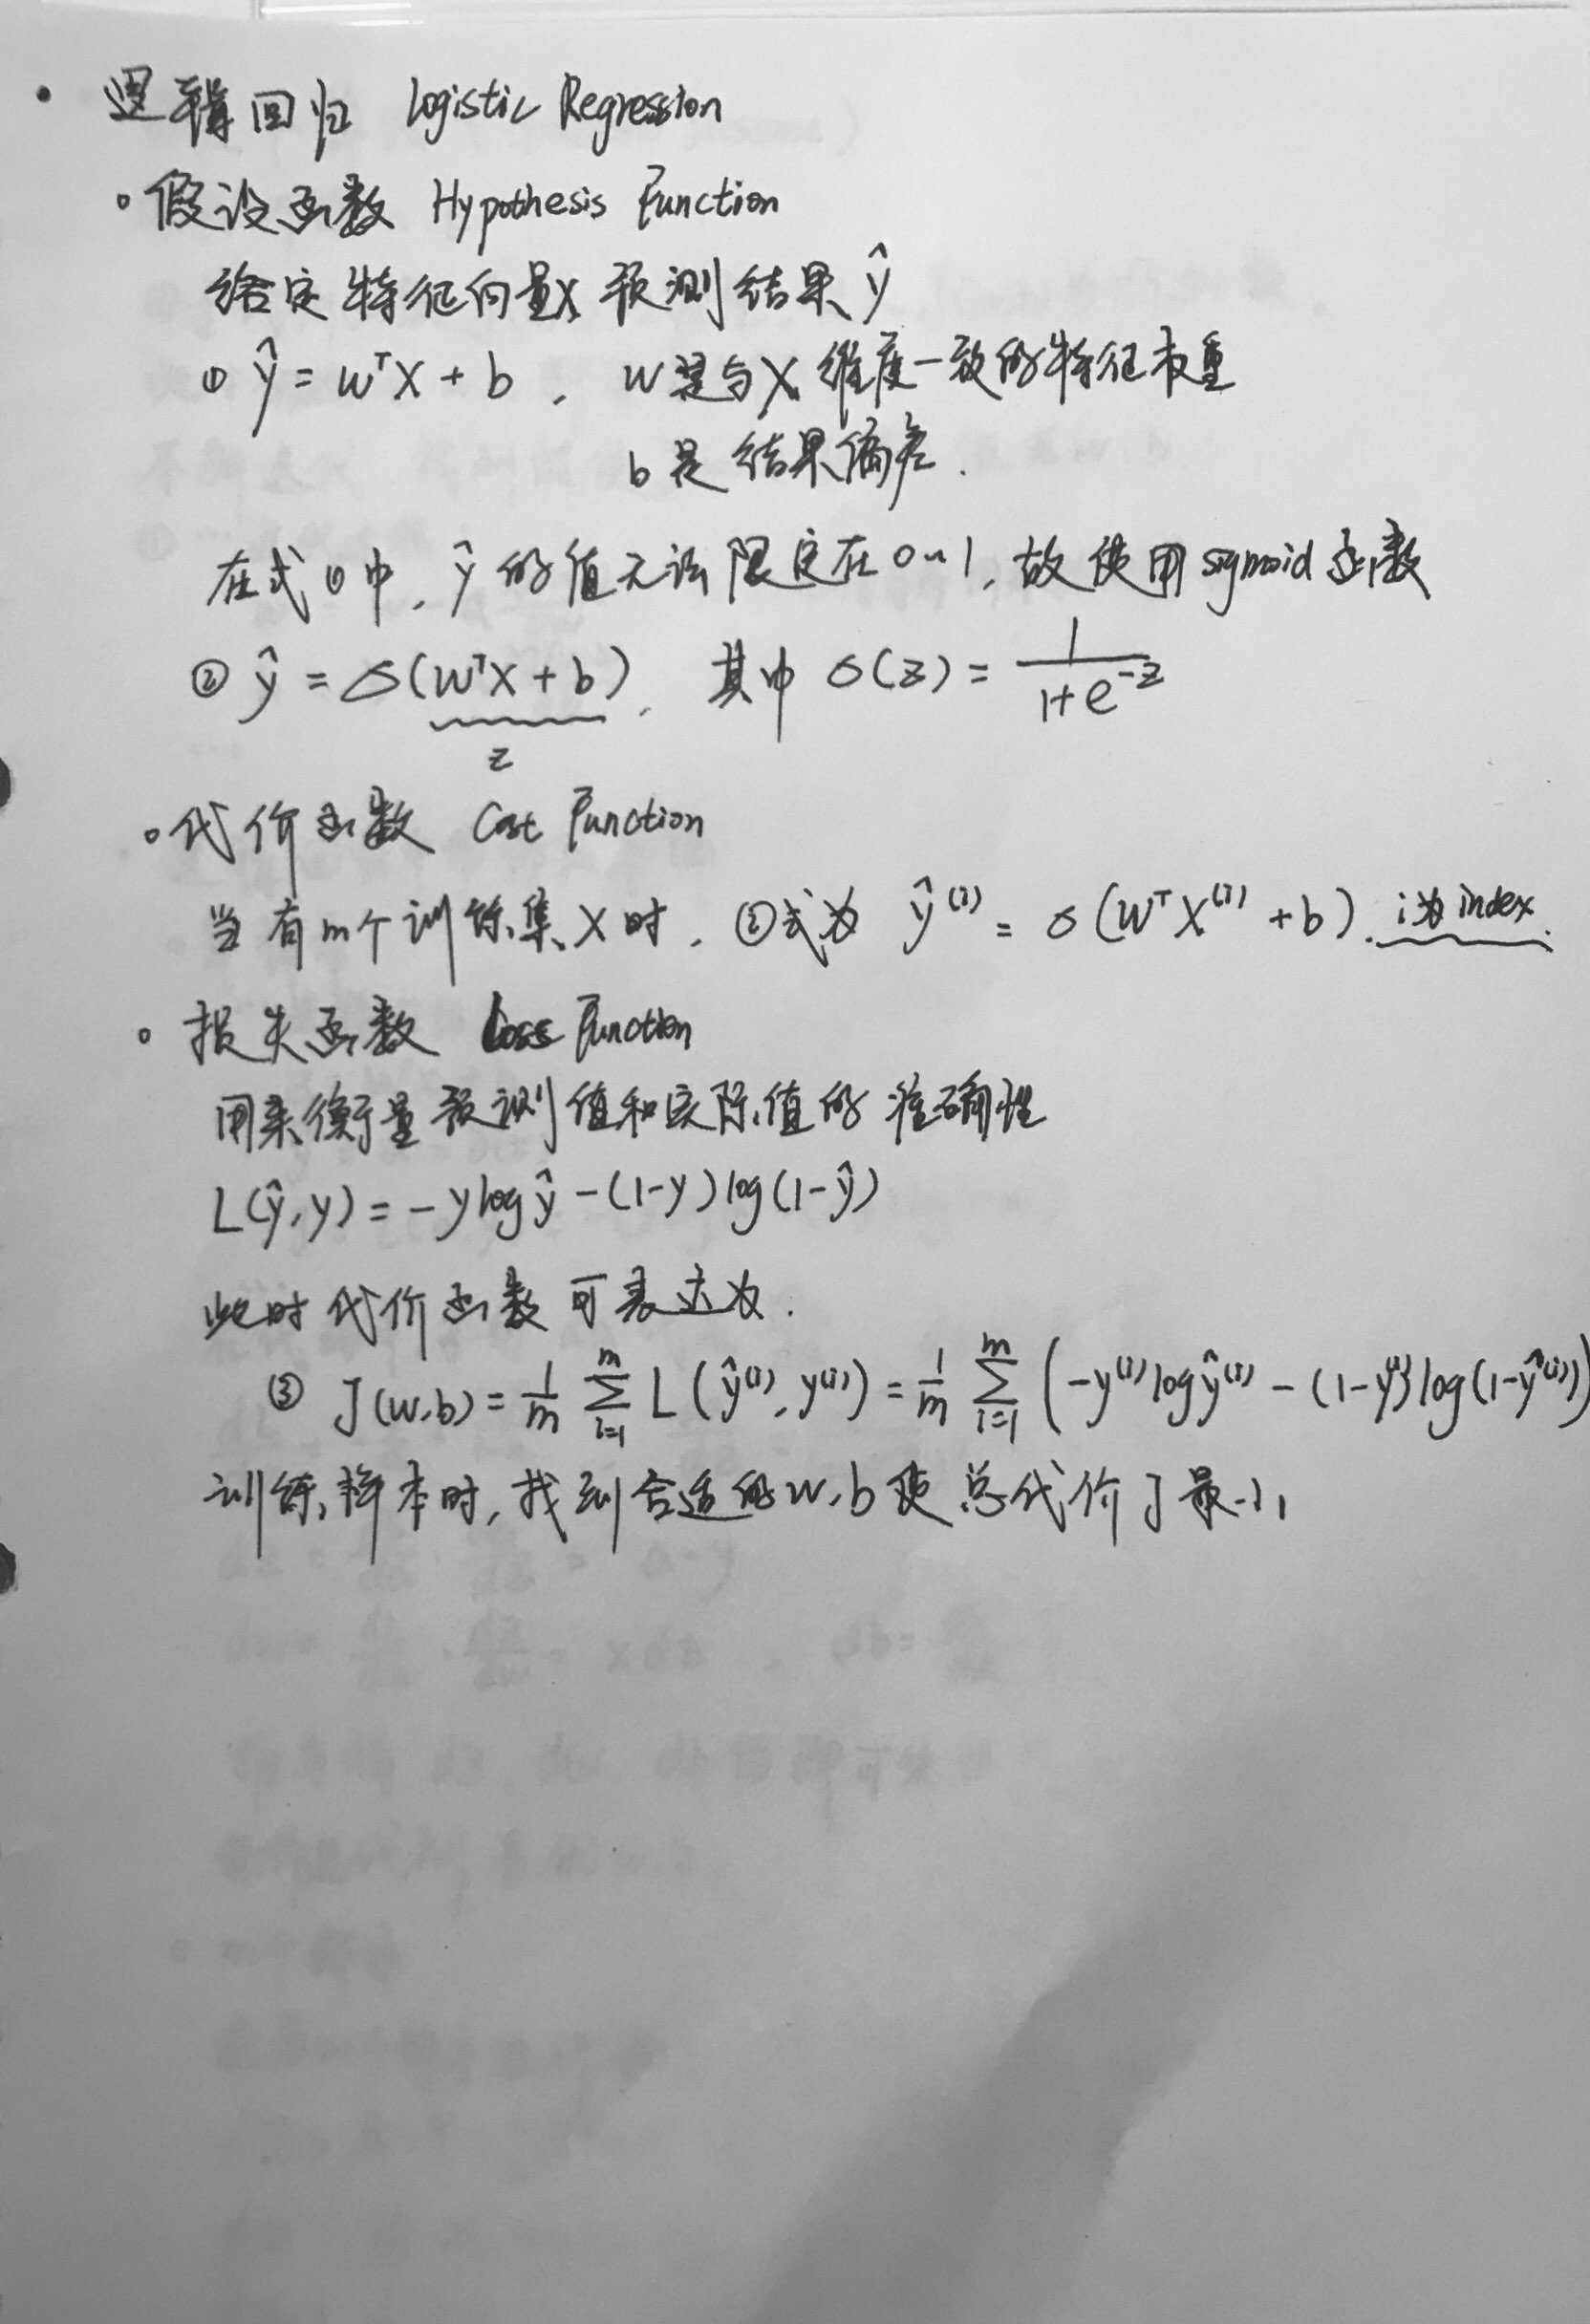 • 逻辑回归 Logistic Regression
∘ 假设函数 Hypothesis Function
给定特征向量X 预测结果 ŷ
① ŷ = wᵀX + b , w是与X维度一致的特征权重
b是结果偏差.
在式①中, ŷ的值无法限定在0~1, 故使用sigmoid函数
② ŷ = σ(wᵀX + b), 其中 σ(z) = 1/(1+e^(-z))
z
∘ 代价函数 Cost Function
当有m个训练集X时, ②式为 ŷ⁽ⁱ⁾ = σ(wᵀX⁽ⁱ⁾ + b), i为index.
∘ 损失函数 Loss Function
用来衡量预测值和实际值的准确性
L(ŷ, y) = -y log ŷ - (1-y) log(1-ŷ)
此时代价函数可表达为.
③ J(w,b) = 1/m ∑_{i=1}^{m} L(ŷ⁽ⁱ⁾, y⁽ⁱ⁾) = 1/m ∑_{i=1}^{m} (-y⁽ⁱ⁾ log ŷ⁽ⁱ⁾ - (1-y⁽ⁱ⁾) log(1-ŷ⁽ⁱ⁾))
训练样本时, 找到合适的w,b使总代价J最小